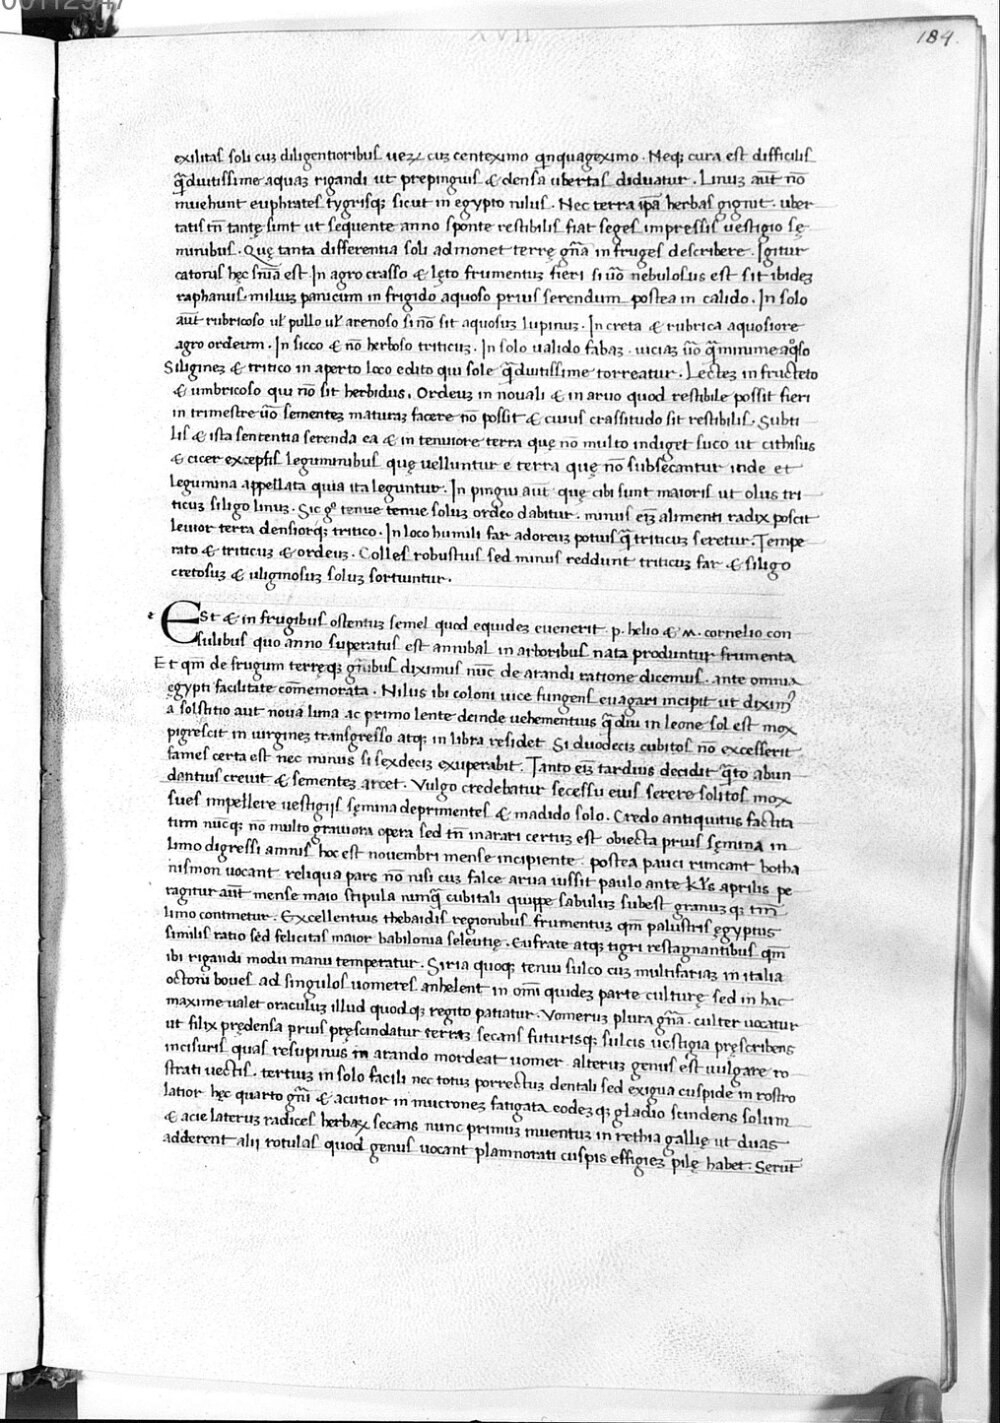 00112947
XVII
184.
exilitas soli cuʒ diligentioribus uerꝝ cuʒ centeximo qͥnquageximo. Neqʒ cura est difficilis
qᷓdiutissime aquaʒ rigandi ut prepinguis & densa ubertas diduatur. Linuʒ aut̄ nō
inuehunt euphrates tygrisqʒ sicut in egypto nilus. Nec terra ip̄a herbas gignit. uber
tatis tn̄ tantę sunt ut sequente anno sponte restibilis fiat seges impressis uestigio sę
minibus. Quę tanta differentia soli admonet terrę gn̄a in fruges describere. Igitur
catonis hęc sn̄ia est. In agro crasso & lęto frumentuʒ fieri si uō nebulosus est sit ibideʒ
raphanus. miliuʒ panicum in frigido aquoso prius serendum postea in calido. In solo
aut̄ rubricoso ul̓ pullo ul̓ arenoso si nō sit aquosuʒ lupinuʒ. In creta & rubrica aquosiore
agro ordeum. In sicco & nō herboso triticuʒ. In solo ualido fabaʒ. uiciaʒ uō qᷓminime aqͦso
Siligineʒ & tritico in aperto loco edito qui sole qᷓdiutissime torreatur. Lecteʒ in fructeto
& umbricoso qui nō sit herbidus. Ordeuʒ in nouali & in aruo quod restibile possit fieri
in trimestre uō sementeʒ maturaʒ facere nō possit & cuius crassitudo sit restibilis. Subti
lis & ista sententia serenda ea & in tenuiore terra quę nō multo indiget suco ut cithisus
& cicer exceptis leguminibus quę uelluntur e terra quę nō subsecantur inde et
legumina appellata quia ita leguntur. In pingui aut̄ quę cibi sunt maioris ut olus tri
ticuʒ siligo linuʒ. Sic gͦ tenue tenue soluʒ ordeo dabitur. minus eīʒ alimenti radix poscit
leuior terra densiorqʒ tritico. In loco humili far adoreuʒ potius qᷓ triticuʒ seretur. Tempe
rato & triticuʒ & ordeuʒ. Colles robustius sed minus reddunt triticuʒ far & siligo
cretosuʒ & uliginosuʒ soluʒ sortiuntur.
Est & in frugibus ostentuʒ semel quod equideʒ euenerit. p. helio & M. cornelio con
sulibus quo anno superatus est annibal in arboribus nata produntur frumenta
Et qm̄ de frugum terręqʒ gn̄ibus diximus nūc de arandi ratione dicemus. ante omnia
ęgypti facilitate com̄emorata. Nilus ibi coloni uice fungens euagari incipit ut diximꝰ
a solstitio aut noua luna ac primo lente deinde uehementius qᷓdiu in leone sol est mox
pigrescit in uirgineʒ transgresso atqʒ in libra residet. Si duodeciʒ cubitos nō excesserit
fames certa est nec minus si sexdeciʒ exuperabit. Tanto eīʒ tardius decidit qᷓto abun
dantius creuit & sementeʒ arcet. Vulgo credebatur secessu eius serere solitos mox
sues impellere uestigijs sęmina deprimentes & madido solo. Credo antiquitus factita
tum nūcqʒ nō multo grauiora opera sed tn̄ inarari certuʒ est obiecta prius sęmina in
limo digressi amnis hoc est nouembri mense incipiente. postea pauci runcant botha
nismon uocant reliqua pars nō nisi cuʒ falce arua iussit paulo ante kl̓s aprilis pe
ragitur aut̄ mense maio stipula nunqᷓ cubitali quippe sabuluʒ subest granuʒqʒ tm̄
limo continetur. Excellentius thebaidis regionibus frumentuʒ qm̄ palustris ęgyptus
similis ratio sed felicitas maior babilonia seleutię. Eufrate atqʒ tigri restagnantibus qm̄
ibi rigandi modu manu temperatur. Siria quoqʒ tenui sulco cuʒ multifariaʒ in italia
octoni boues ad singulos uomeres anhelent in om̄i quideʒ parte culturę sed in hac
maxime ualet oraculuʒ illud quodqʒ regito patiatur. Vomeruʒ plura gn̄a. culter uocatur
ut filix prędensa prius pręscindatur terraʒ secans futurisqʒ sulcis uestigia pręscribens
incisuris quas resupinus in arando mordeat uomer. alteruʒ genus est uulgare ro
strati uectis. tertiuʒ in solo facili nec totuʒ porrectuʒ dentali sed exigua cuspide in rostro
latior hęc quarto gn̄i & acutior in mucroneʒ fatigata eodeʒqʒ gladio scindens solum
& acie lateruʒ radices herbaꝝ secans nunc primuʒ inuentuʒ in rethia gallię ut duas
adderent alii rotulas quod genus uocant plamnorati cuspis effigieʒ pilę habet. Serūt